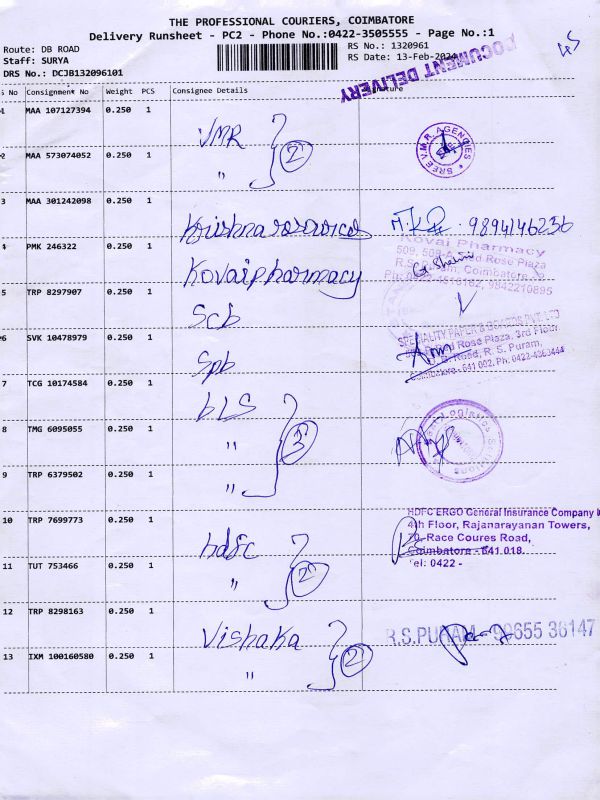 THE PROFESSIONAL COURIERS, COIMBATORE
Delivery Runsheet - PC2 - Phone No.:0422-3505555 - Page No.:1
Route: DB ROAD
RS No.: 1320961
Staff: SURYA
RS Date: 13-Feb-2024
DRS No.: DCJB132096101
DOCUMENT DELIVERY
S No Consignment No Weight PCS Consignee Details Signature
1 MAA 107127394 0.250 1
VMR 2
SREE V.M.R. AGENCIES
2 MAA 573074052 0.250 1
"
3 MAA 301242098 0.250 1
Krishna 9894146236
4 PMK 246322 0.250 1
Kovai pharmacy
Kovai Pharmacy
Red Rose Plaza
Coimbatore
9842210895
5 TRP 8297907 0.250 1
Scb
6 SVK 10478979 0.250 1
Spb
SPECIALITY PAPER & BOARDS PVT LTD
Red Rose Plaza, 3rd Floor
Road, R. S. Puram,
Coimbatore - 641 002. Ph: 0422-4363444
7 TCG 10174584 0.250 1
bLS
8 TMG 6095055 0.250 1
" 3
9 TRP 6379502 0.250 1
"
10 TRP 7699773 0.250 1
hdfc
HDFC ERGO General Insurance Company
4th Floor, Rajanarayanan Towers,
70, Race Coures Road,
Coimbatore - 641 018.
Tel: 0422 -
11 TUT 753466 0.250 1
" 2
12 TRP 8298163 0.250 1
Vishaka
R.S.PURAM - 99655 36147
13 IXM 100160580 0.250 1
" 2